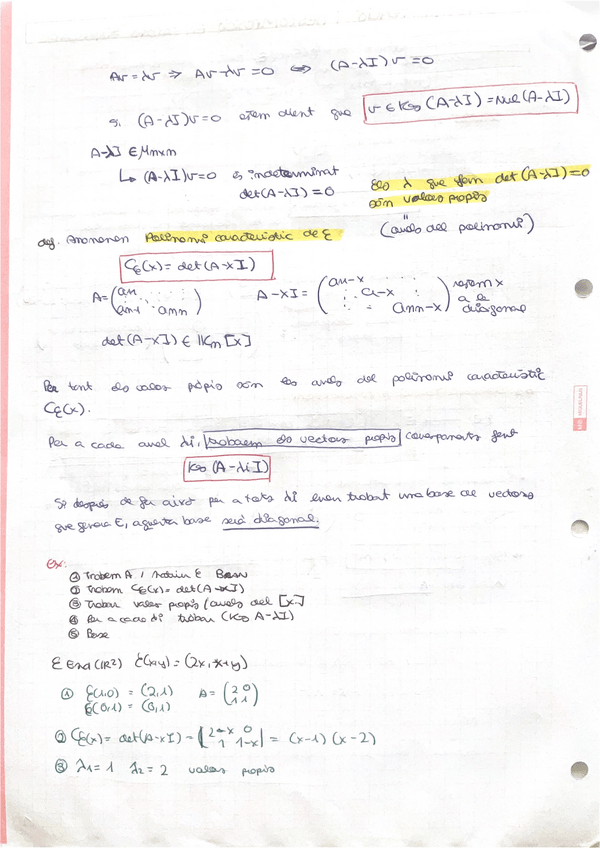 Av = λv ⇒ Av - λv = 0 ⇔ (A-λI)v = 0
si (A-λI)v=0 estem dient que v ∈ Ker (A-λI) = Nul(A-λI)
A-λI ∈ Mnxn
↳ (A-λI)v=0 és indeterminat
det(A-λI) = 0
Els λ que fan det(A-λI)=0
són valors propis
"
(arrels del polinomi)
def. Anomenem Polinomi característic de f
Cf(x) = det(A-xI)
A = (a11 ... an1 ... ann)
A-xI = (a11-x ... a-x ... ann-x) restem x
a la
diagonal
det(A-xI) ∈ Kn[x]
Per tant els valors propis són les arrels del polinomi característic
Cf(x).
Per a cada arrel λi, trobarem els vectors propis corresponents fent
Ker (A-λiI)
Si després de fer això per a tots λi hem trobat una base de vectors
que genera E, aquesta base serà diagonal.
Ex:
① Trobem A / Matriu f Base
② Trobem Cf(x) = det(A-xI)
③ Trobar valors propis / arrels del [x]
④ Per a cada λi trobar (Ker A-λI)
⑤ Base
f ∈ End(R²) f(x,y) = (2x, x+y)
① f(1,0) = (2,1) A = (2 0
f(0,1) = (0,1) 1 1)
② Cf(x) = det(A-xI) = |2-x 0
1 1-x| = (x-1)(x-2)
③ λ1=1 λ2=2 valors propis